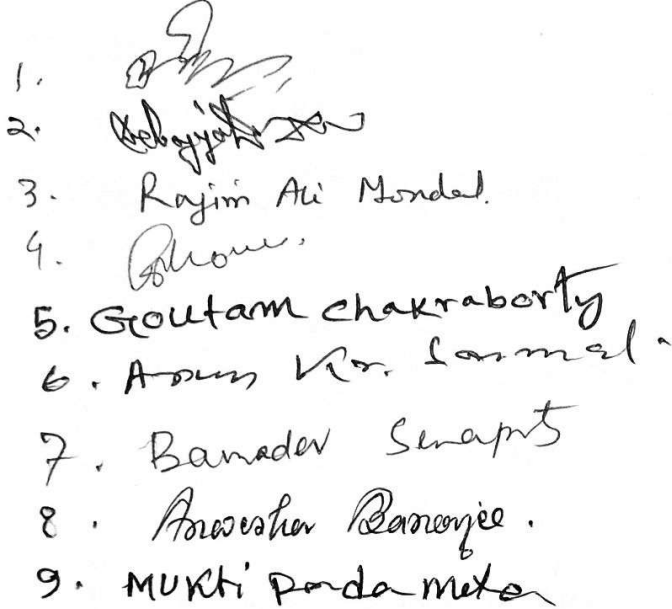 1.
2. Debajyoti Das
3. Rajim Ali Mondal.
4.
5. Goutam Chakraborty
6. Arun Kr. Sanmal.
7. Bamadev Senapati
8. Anwesha Banerjee.
9. Mukti Pada